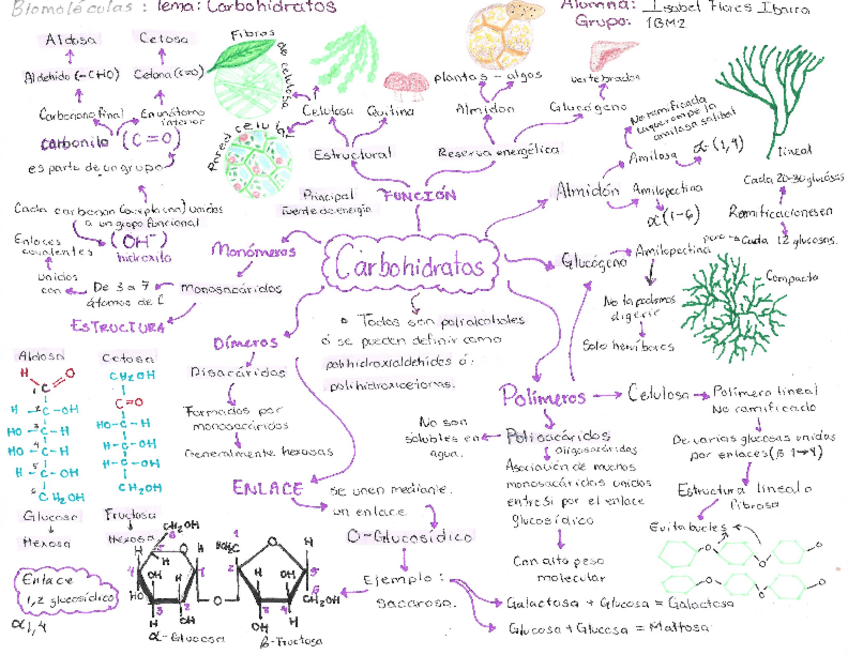 Biomoléculas : Tema: Carbohidratos
Alumna: Isabel Flores Ibarra
Grupo: 1BM2
Aldosa
Cetosa
Aldehído (-CHO)
Cetona (C=O)
Carbono final
En un átomo
interior
Carbonilo (C=O)
es parte de un grupo
Cada carbono unidos
a un grupo funcional
(OH⁻)
hidroxilo
Enlaces
covalentes
unidos
con
De 3 a 7
átomos de C
ESTRUCTURA
Monómeros
monosacáridos
Fibras
de celulosa
Pared celular
Celulosa
Quitina
Estructural
Principal
fuente de energía
FUNCIÓN
plantas - algas
Almidón
vertebrados
Glucógeno
Reserva energética
Carbohidratos
• Todos son polialcoholes
ó se pueden definir como
polihidroxialdehídos ó
polihidroxicetonas.
Almidón
No ramificada
amilasa salival
Amilosa
α-(1,4)
lineal
Amilopectina
α(1-6)
Cada 20-30 glucosas
Ramificaciones en
Glucógeno
Amilopectina
pero
Cada 12 glucosas.
Compacta
No la podemos
digerir
Solo herbívoros
Dímeros
Disacáridos
Formados por
monosacáridos
Generalmente hexosas
ENLACE
se unen mediante
un enlace
O-Glucosídico
Ejemplo:
Sacarosa.
Galactosa + Glucosa = Galactosa
Glucosa + Glucosa = Maltosa
Polímeros
Celulosa
Polímero lineal
No ramificado
De varias glucosas unidas
por enlaces (β 1→4)
Estructura lineal o
fibrosa
Evita bucles
O
O
O
O
O
O
No son
solubles en
agua.
Polisacáridos
Oligosacáridos
Asociación de muchos
monosacáridos unidos
entre si por el enlace
glucosídico
Con alto peso
molecular
Aldosa
H
O
1
C
H - 2 C - OH
HO - 3 C - H
HO - 4 C - H
H - 5 C - OH
6 CH₂OH
Glucosa
Hexosa
Cetosa
CH₂OH
C=O
HO-C-H
H-C-OH
H-C-OH
CH₂OH
Fructosa
Hexosa
Enlace
1,2 glucosídico
α1,4
6
CH₂OH
5
O
H
H
H
4
1
OH
H
HO
3
2
H
OH
O
α-Glucosa
1
HOH₂C
O
H
2
5
H
OH
3
4
CH₂OH
6
OH
H
β-Fructosa